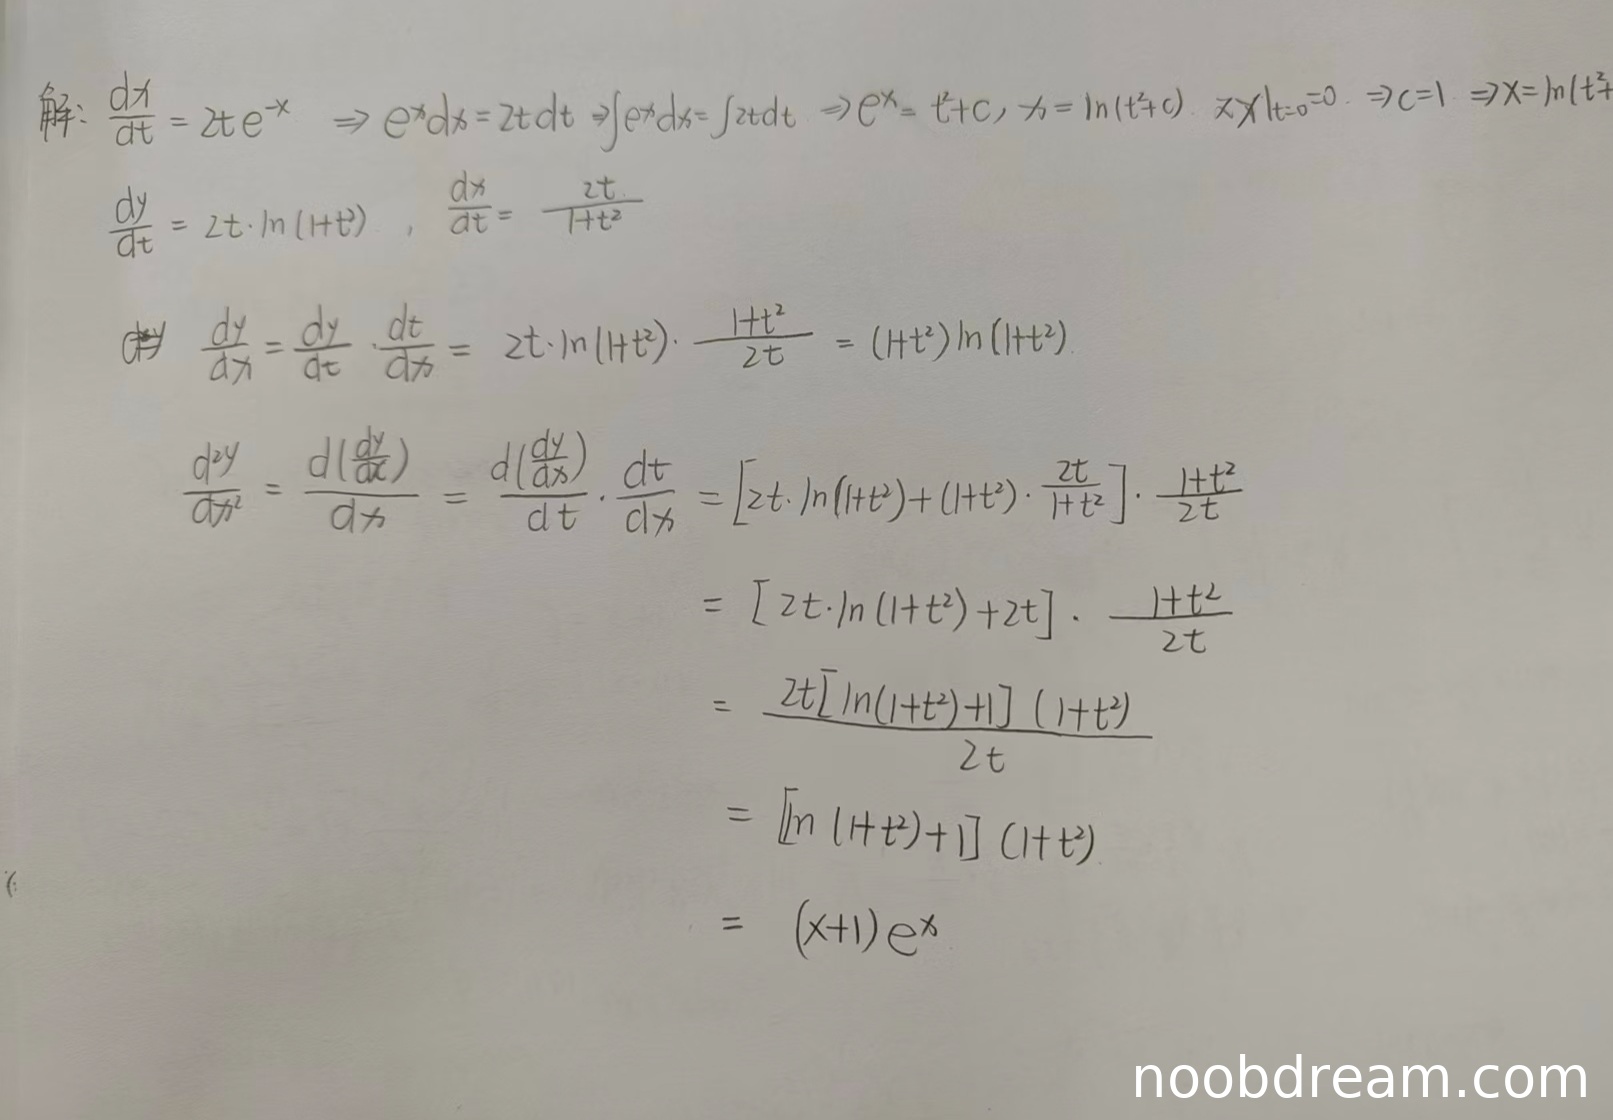 解: dx/dt = 2te^{-x} ⇒ e^x dx = 2t dt ⇒ ∫e^x dx = ∫2t dt ⇒ e^x = t²+c, x = ln(t²+c). 又x|t=0=0. ⇒ c=1 ⇒ x = ln(t²+
dy/dt = 2t·ln(1+t²), dx/dt = 2t/(1+t²)
dy/dx = dy/dt · dt/dx = 2t·ln(1+t²)· (1+t²)/2t = (1+t²)ln(1+t²)
d²y/dx² = d(dy/dx)/dx = d(dy/dx)/dt · dt/dx = [2t·ln(1+t²)+(1+t²)· 2t/(1+t²)] · (1+t²)/2t
= [2t·ln(1+t²)+2t] · (1+t²)/2t
= 2t[ln(1+t²)+1](1+t²)/2t
= [ln(1+t²)+1](1+t²)
= (x+1)e^x
noobdream.com